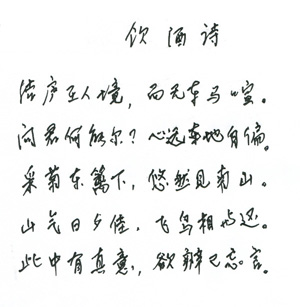 饮酒诗
结庐在人境，而无车马喧。
问君何能尔？心远地自偏。
采菊东篱下，悠然见南山。
山气日夕佳，飞鸟相与还。
此中有真意，欲辨已忘言。